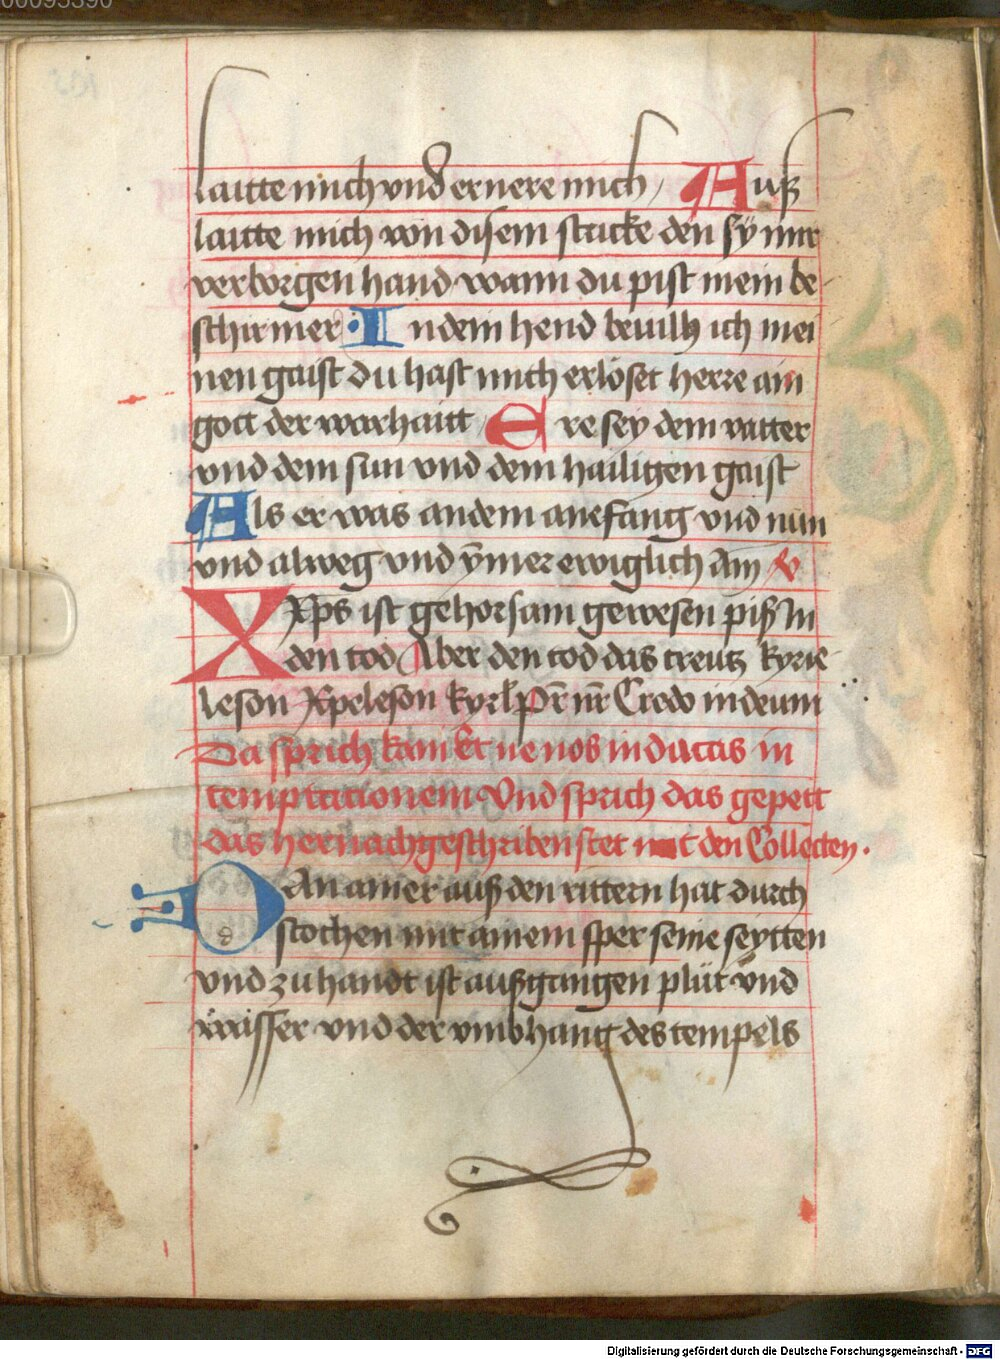 00095390
laitte mich vnd ernere mich / Auß
laitte mich von disem stricke den sÿ mir
verborgen hand wann du pist mein be
schirmer · In dein hend beuilh ich mei
nen gaist du hast mich erlöset herre ain
gott der warhaitt Ere sey dem vatter
vnd dem sun vnd dem hailigen gaist
Als er was an dem anefang vnd nun
vnd alweg vnd ÿmer ewiglich Am v
Xp̄s ist gehorsam gewesen piß In
den tod Aber den tod das creutz kyrie
leson Xpeleson kyrl pr̄ nr̄ Credo in deum
Da sprich kain Et ne nos inducas in
temptacionem Vnd sprich das gepett
das hernach geschriben stet mit den Collecten .
DAn ainer auß den rittern hat durch
stochen mit ainem sper seine seytten
vnd zu handt ist außgangen plüt vnd
wasser vnd der vmbhang des tempels
Digitalisierung gefördert durch die Deutsche Forschungsgemeinschaft - DFG